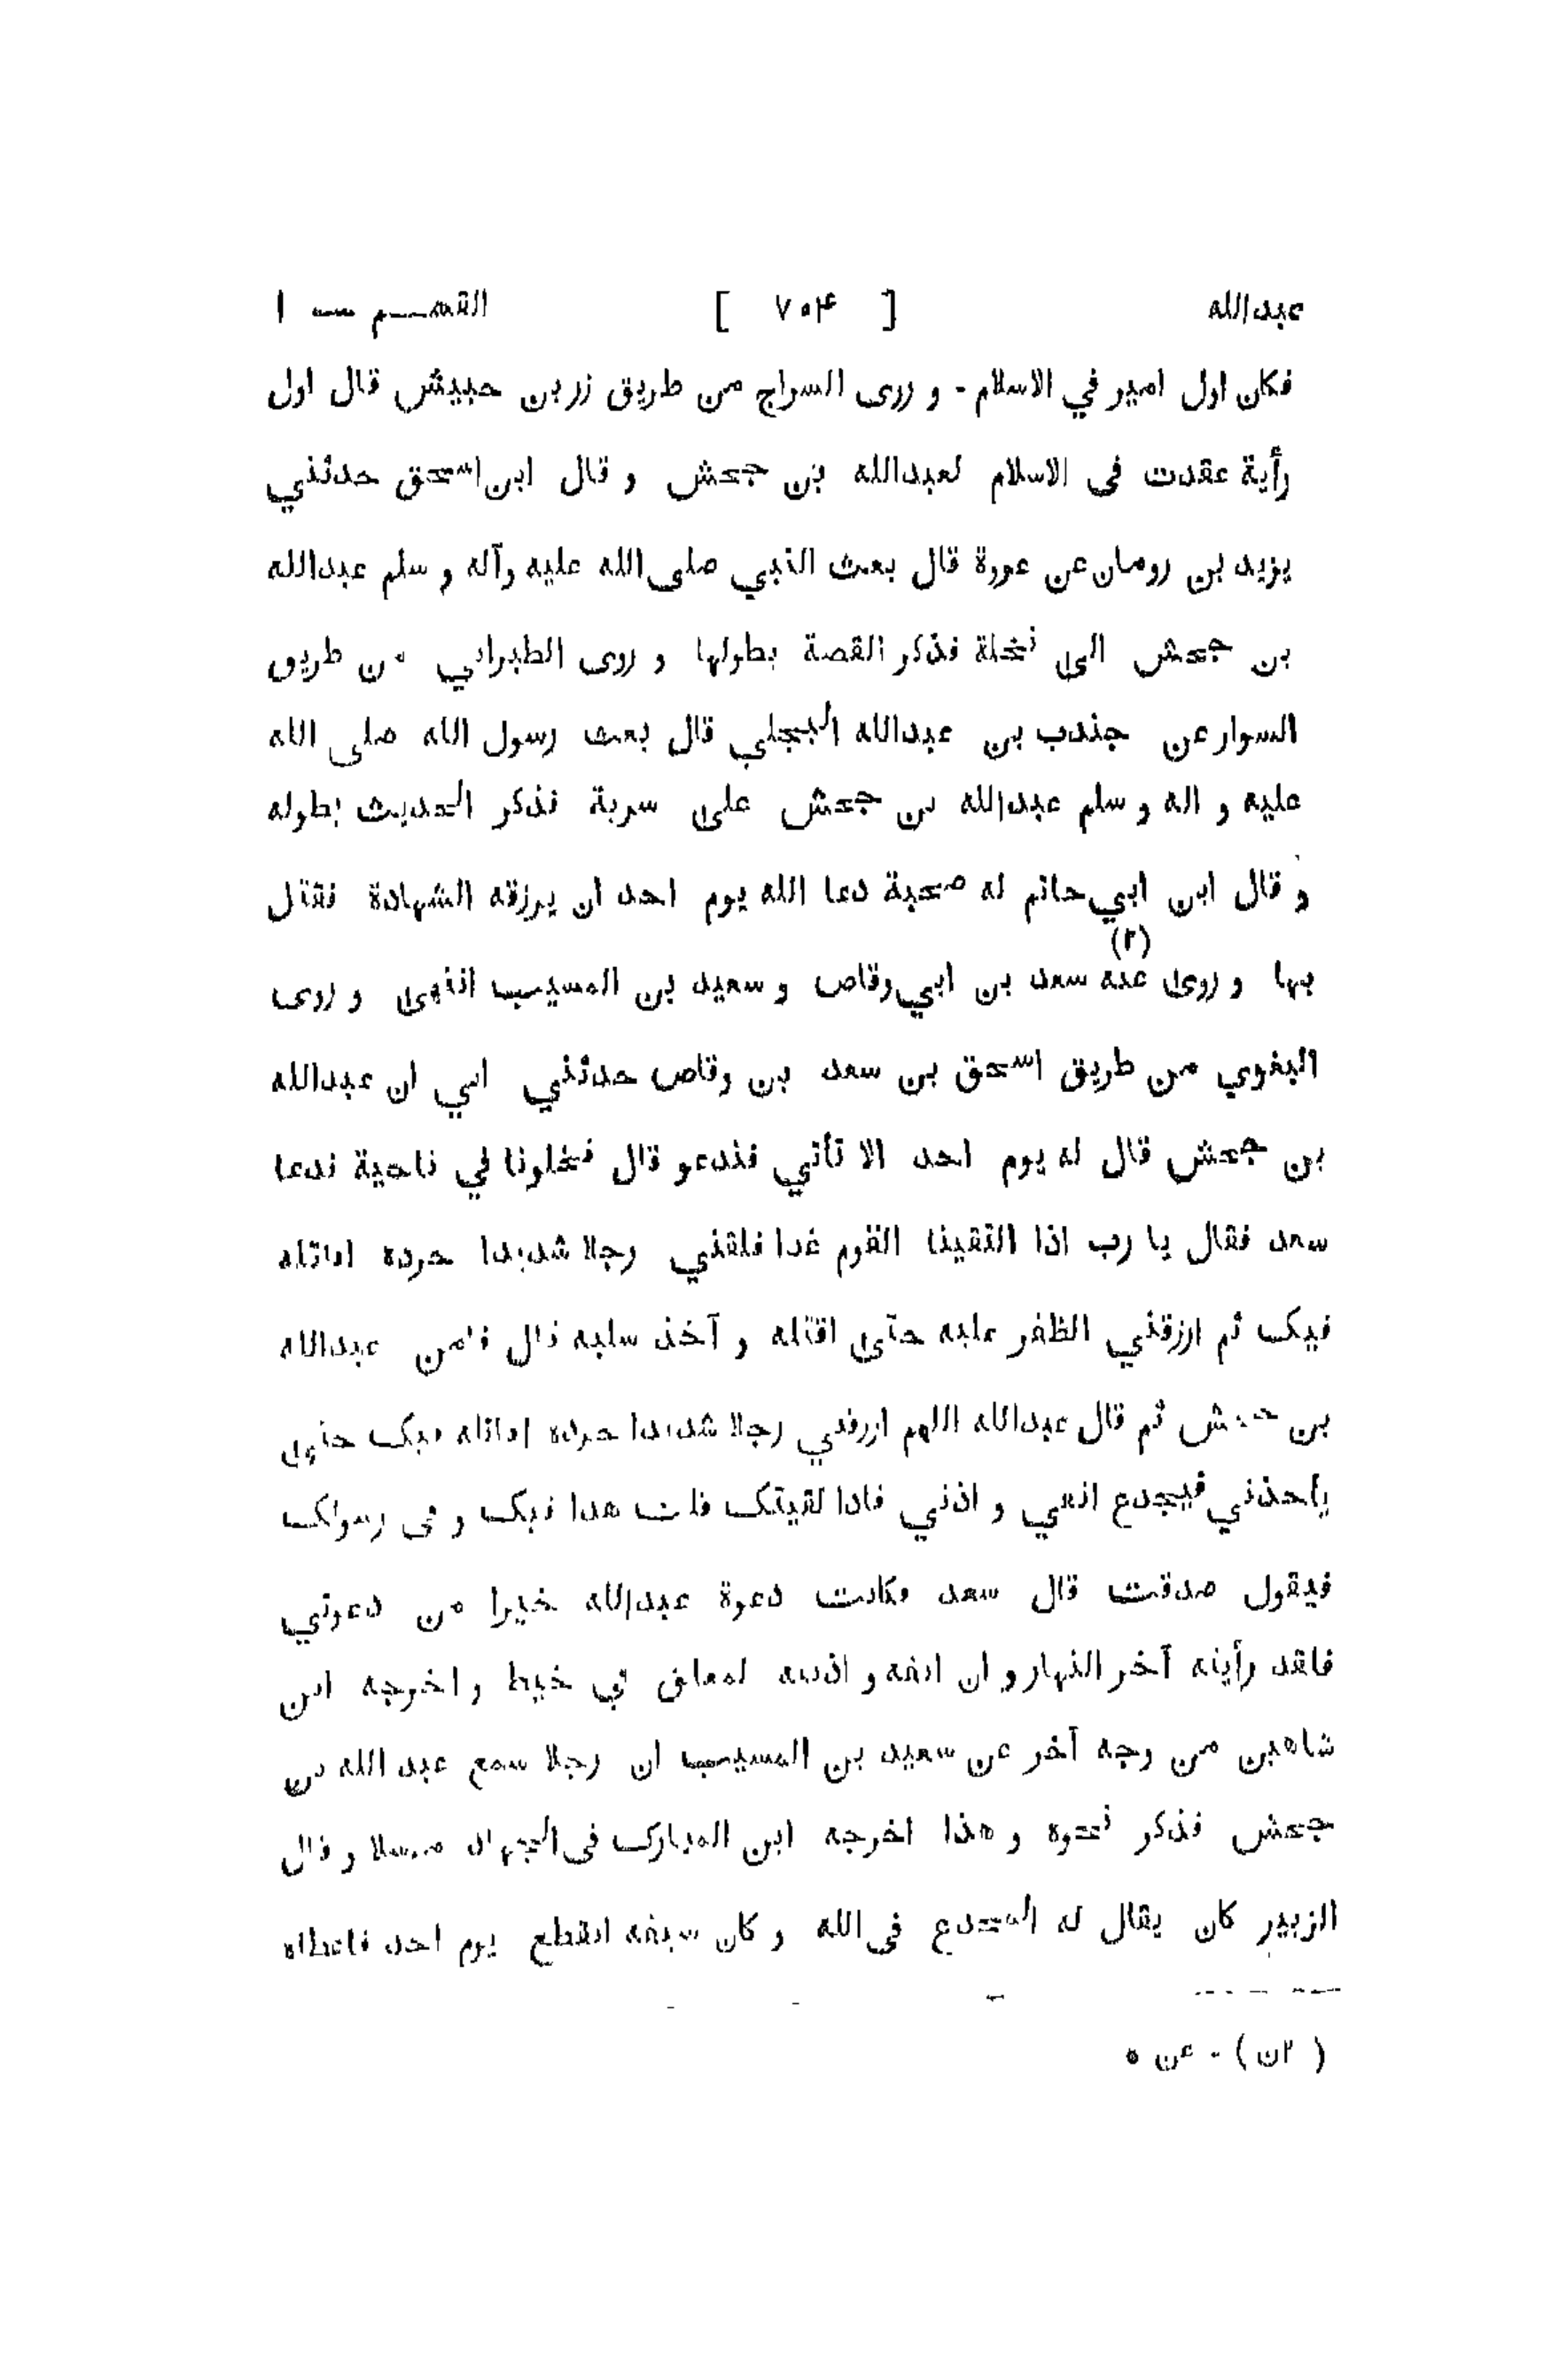 عبدالله [ ٧٥۴ ] القسم — ١
فكان اول امير في الاسلام - و روى السراج من طريق زر بن حبيش قال اول
رأية عقدت فى الاسلام لعبدالله بن جحش و قال ابن اسحق حدثني
يزيد بن رومان عن عروة قال بعث النبي صلى الله عليه وآله و سلم عبدالله
بن جحش الى نخلة فذكر القصة بطولها و روى الطبراني من طريق
السوار عن جندب بن عبدالله البجلي قال بعث رسول الله صلى الله
عليه و اله و سلم عبدالله بن جحش على سرية فذكر الحديث بطوله
و قال ابن ابي حاتم له صحبة دعا الله يوم احد ان يرزقه الشهادة فقتل
بها و روى عنه (٢) سعد بن ابي وقاص و سعيد بن المسيب انتهى و روى
البغوي من طريق اسحق بن سعد بن وقاص حدثني ابي ان عبدالله
بن جحش قال له يوم احد الا تأتي فندعو قال فخلونا في ناحية فدعا
سعد فقال يا رب اذا التقينا القوم غدا فلقني رجلا شديدا حرده اقاتله
فيك ثم ارزقني الظفر عليه حتى اقتله و آخذ سلبه قال فامن عبدالله
بن جحش ثم قال عبدالله اللهم ارزقني رجلا شديدا حرده اقاتله فيك حتى
يأخذني فيجدع انفي و اذني فاذا لقيتك قلت هذا فيك و فى رسولك
فيقول صدقت قال سعد فكانت دعوة عبدالله خيرا من دعوتي
فلقد رأيته آخر النهار و ان انفه و اذنه لمعلق في خيط و اخرجه ابن
شاهين من وجه آخر عن سعيد بن المسيب ان رجلا سمع عبد الله بن
جحش فذكر نحوه و هذا اخرجه ابن المبارك فى الجهاد مرسلا و قال
الزبير كان يقال له المجدع فى الله و كان سيفه انقطع يوم احد فاعطاه
( ٢ن ) - عن *